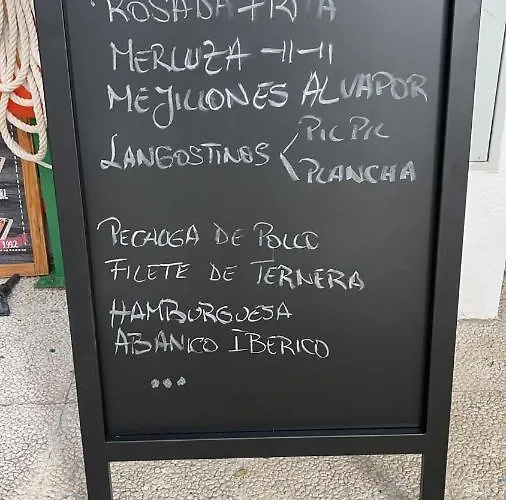 ROSADA FRITA
MERLUZA -11-11
MEJILLONES ALVAPOR
LANGOSTINOS < PIL PIL
PLANCHA
PECHOGA DE POLLO
FILETE DE TERNERA
HAMBURGUESA
ABANICO IBERICO
...
1992